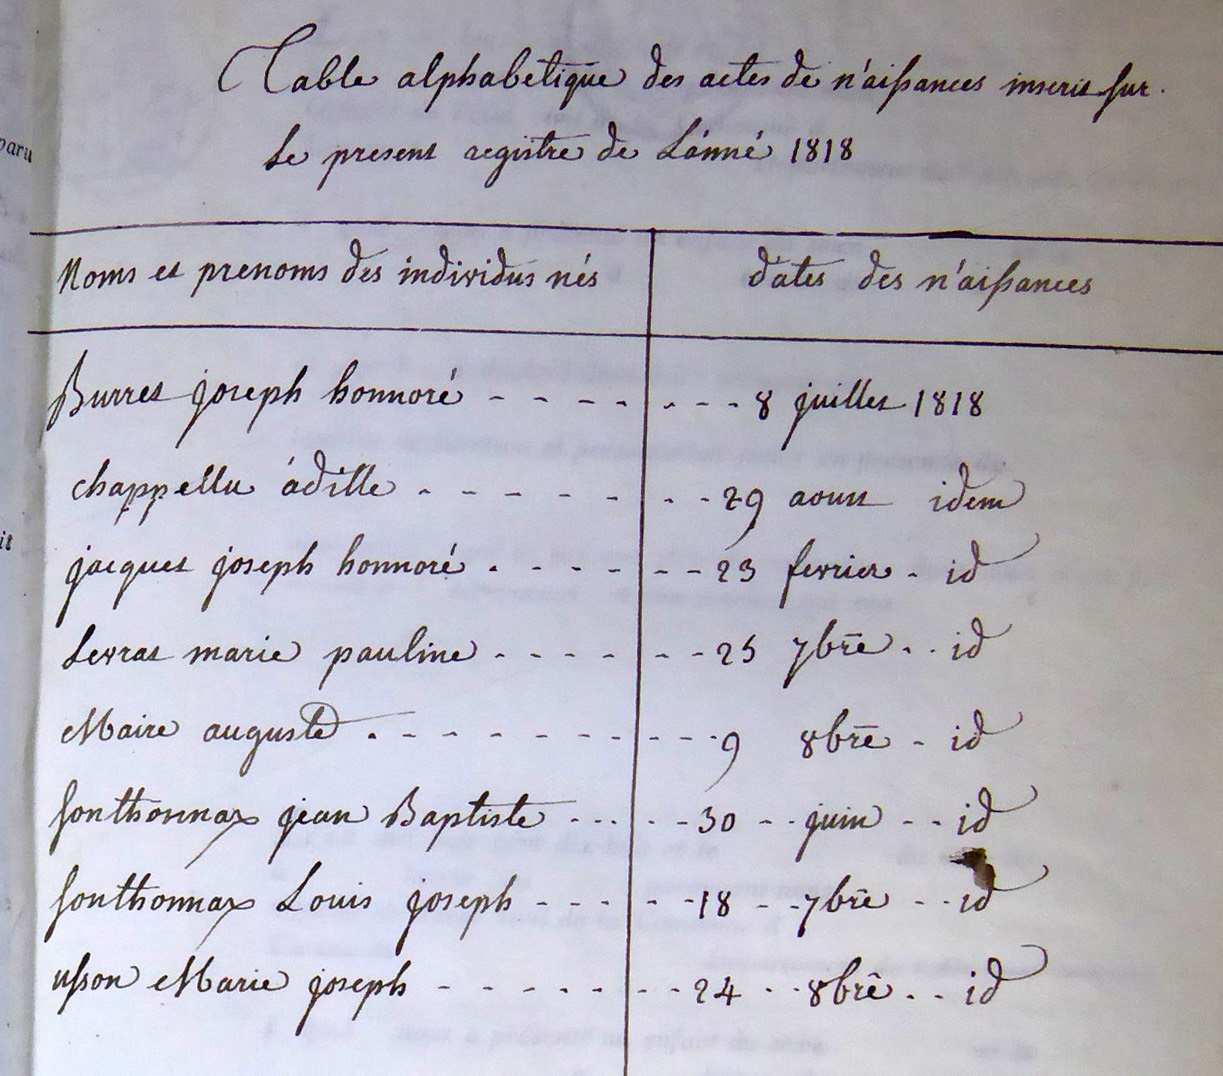 Table alphabetique des actes de n'aissances inscrit sur
Le present registre de L'ánné 1818
Noms et prenoms des individus nés
dates des n'aissances
Burret joseph honnoré - - - - - - - 8 juillet 1818
chappellu ádille - - - - - - - - 29 aoust idem
jacquet joseph honnoré . - - - - - - 23 fevrier - id
Levrat marie pauline - - - - - - - 25 7bre - - id
Maire auguste . - - - - - - - - - 9 8bre - id
Sonthonnax jean Baptiste - - - - - 30 - - juin - - id
Sonthonnax Louis joseph - - - - - - 18 - - 7bre - - id
usson Marie joseph - - - - - - - - 24 - - 8bre - - id